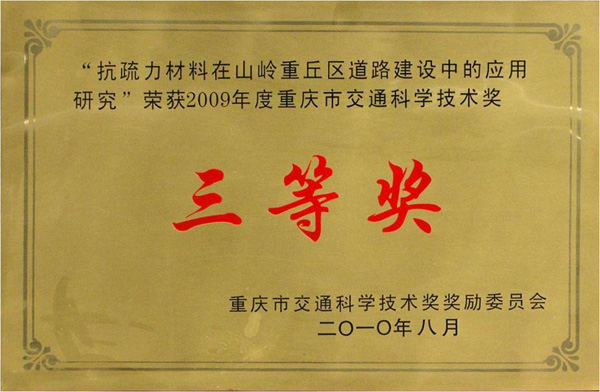 “抗疏力材料在山岭重丘区道路建设中的应用
研究”荣获2009年度重庆市交通科学技术奖
三等奖
重庆市交通科学技术奖奖励委员会
二〇一〇年八月